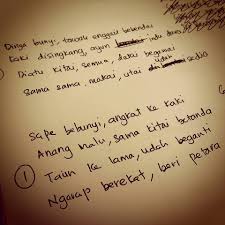 Dinga bunyi, tawak enggau bebendai
Kaki disingkang, ayun indu dara
Diatu kitai, semua, datai begamai
Sama sama makai, utai udah sedia
Sape bebunyi, angkat ke kaki
Anang malu, sama kitai betanda
① Taun ke lama, udah beganti
Ngarap berekat, beri petara